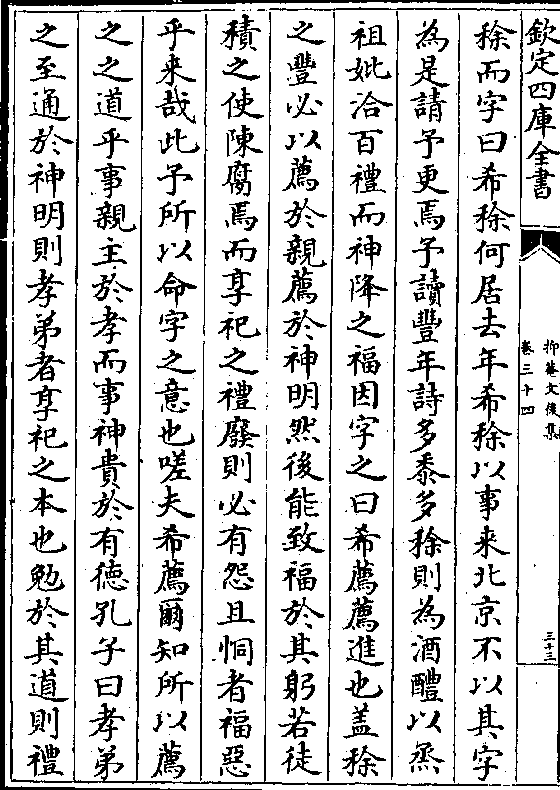 欽定四庫全書
抑菴文後集
卷三十四
三十三
稌而字曰希稌何居去年希稌以事来北京不以其字
為是請予更焉予讀豐年詩多黍多稌則為酒醴以烝
祖妣洽百禮而神降之福因字之曰希薦薦進也盖稌
之豐必以薦於親薦於神明然後能致福於其躬若徒
積之使陳腐焉而享祀之禮廢則必有怨且恫者福惡
乎来哉此予所以命字之意也嗟夫希薦爾知所以薦
之之道乎事親主於孝而事神貴於有徳孔子曰孝弟
之至通於神明則孝弟者享祀之本也勉於其道則禮